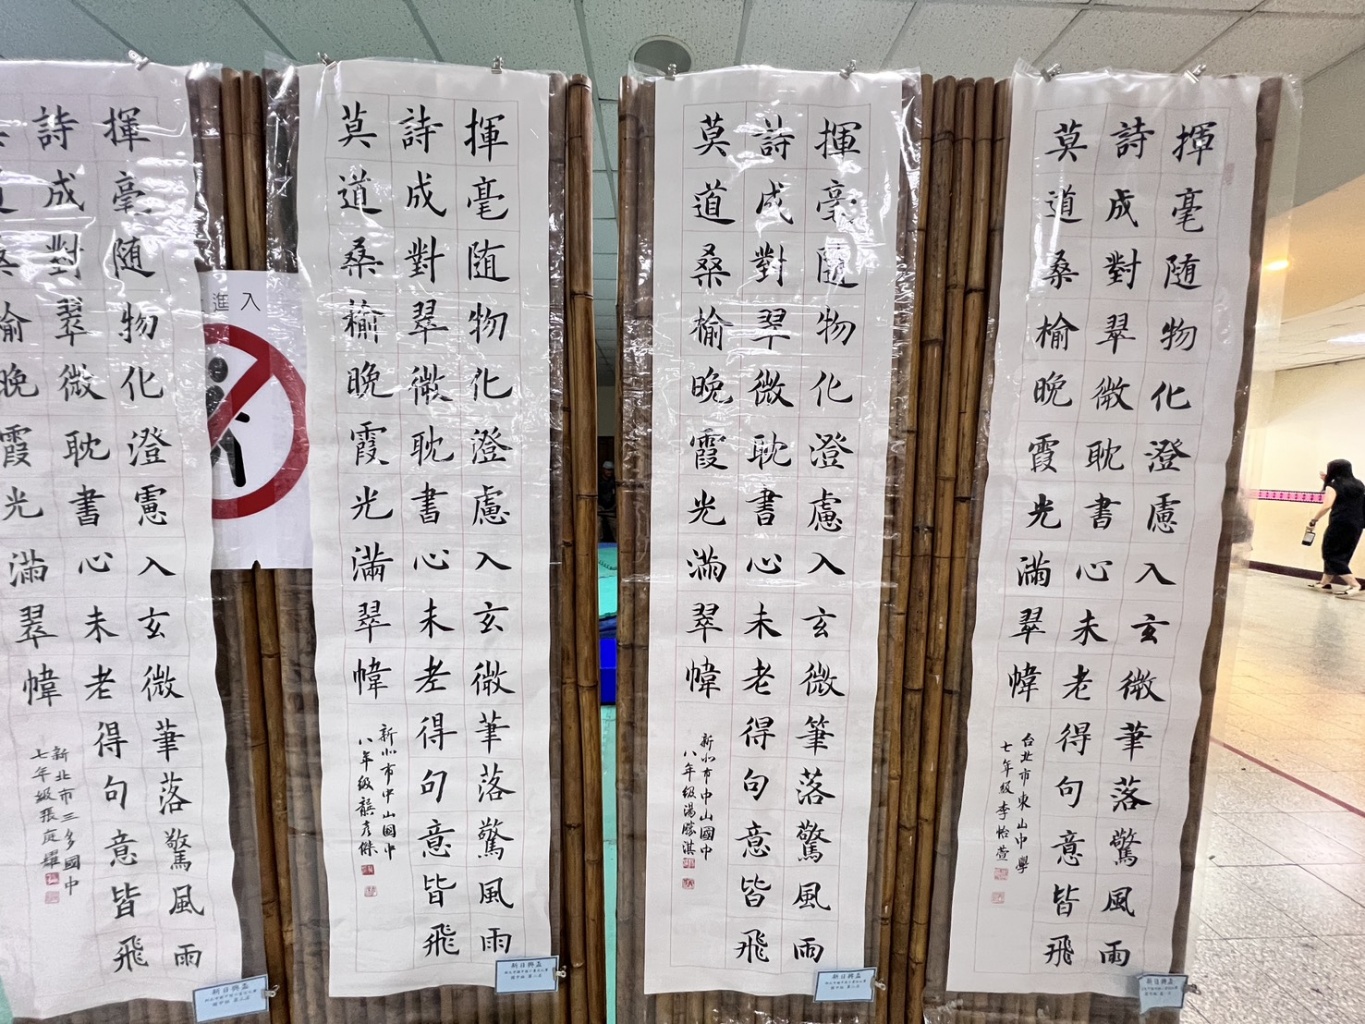 揮毫随物化澄慮入玄微筆落驚風雨
詩成對翠微耽書心未老得句意皆飛
莫道桑榆晚霞光滿翠幃
台北市東山中學
七年級李怡萱
揮毫隨物化澄慮入玄微筆落驚風雨
詩成對翠微耽書心未老得句意皆飛
莫道桑榆晚霞光滿翠幃
新北市中山國中
八年級湯勝淇
揮毫随物化澄慮入玄微筆落驚風雨
詩成對翠微耽書心未老得句意皆飛
莫道桑榆晚霞光滿翠幃
新北市中山國中
八年級龔彥傑
揮毫随物化澄慮入玄微筆落驚風雨
詩成對翠微耽書心未老得句意皆飛
道桑榆晚霞光滿翠幃
新北市三多國中
七年級張庭耀